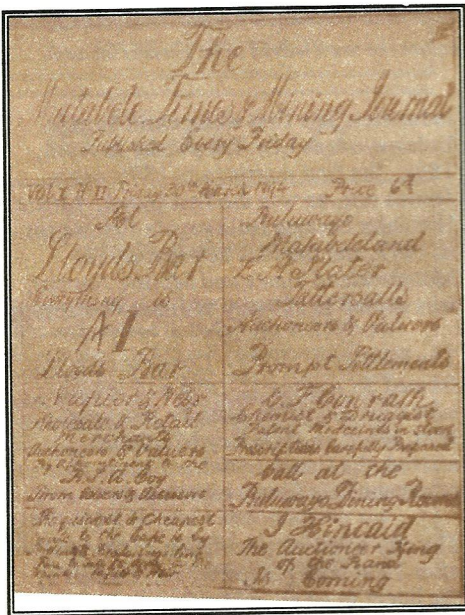 The
Matabele Times & Mining Journal
Published Every Friday
Friday 30th March 1894 Price 6d
At
Lloyds Bar
Everything is
A1
Lloyds Bar
Napier & Weir
Wholesale & Retail
Merchants
Auctioneers & Valuers
By Appointment to the
B.S.A. Coy
The quickest & Cheapest
route to the Cape is by
Buluwayo
Matabeleland
E A Slater
Tattersalls
Auctioneers & Valuers
Prompt Settlements
Chemist & Druggist
Patent Medicines in store
Prescriptions Carefully Prepared
Call at the
Buluwayo Dining Rooms
J Kincaid
The Auctioneer King
of the Rand
Is Coming